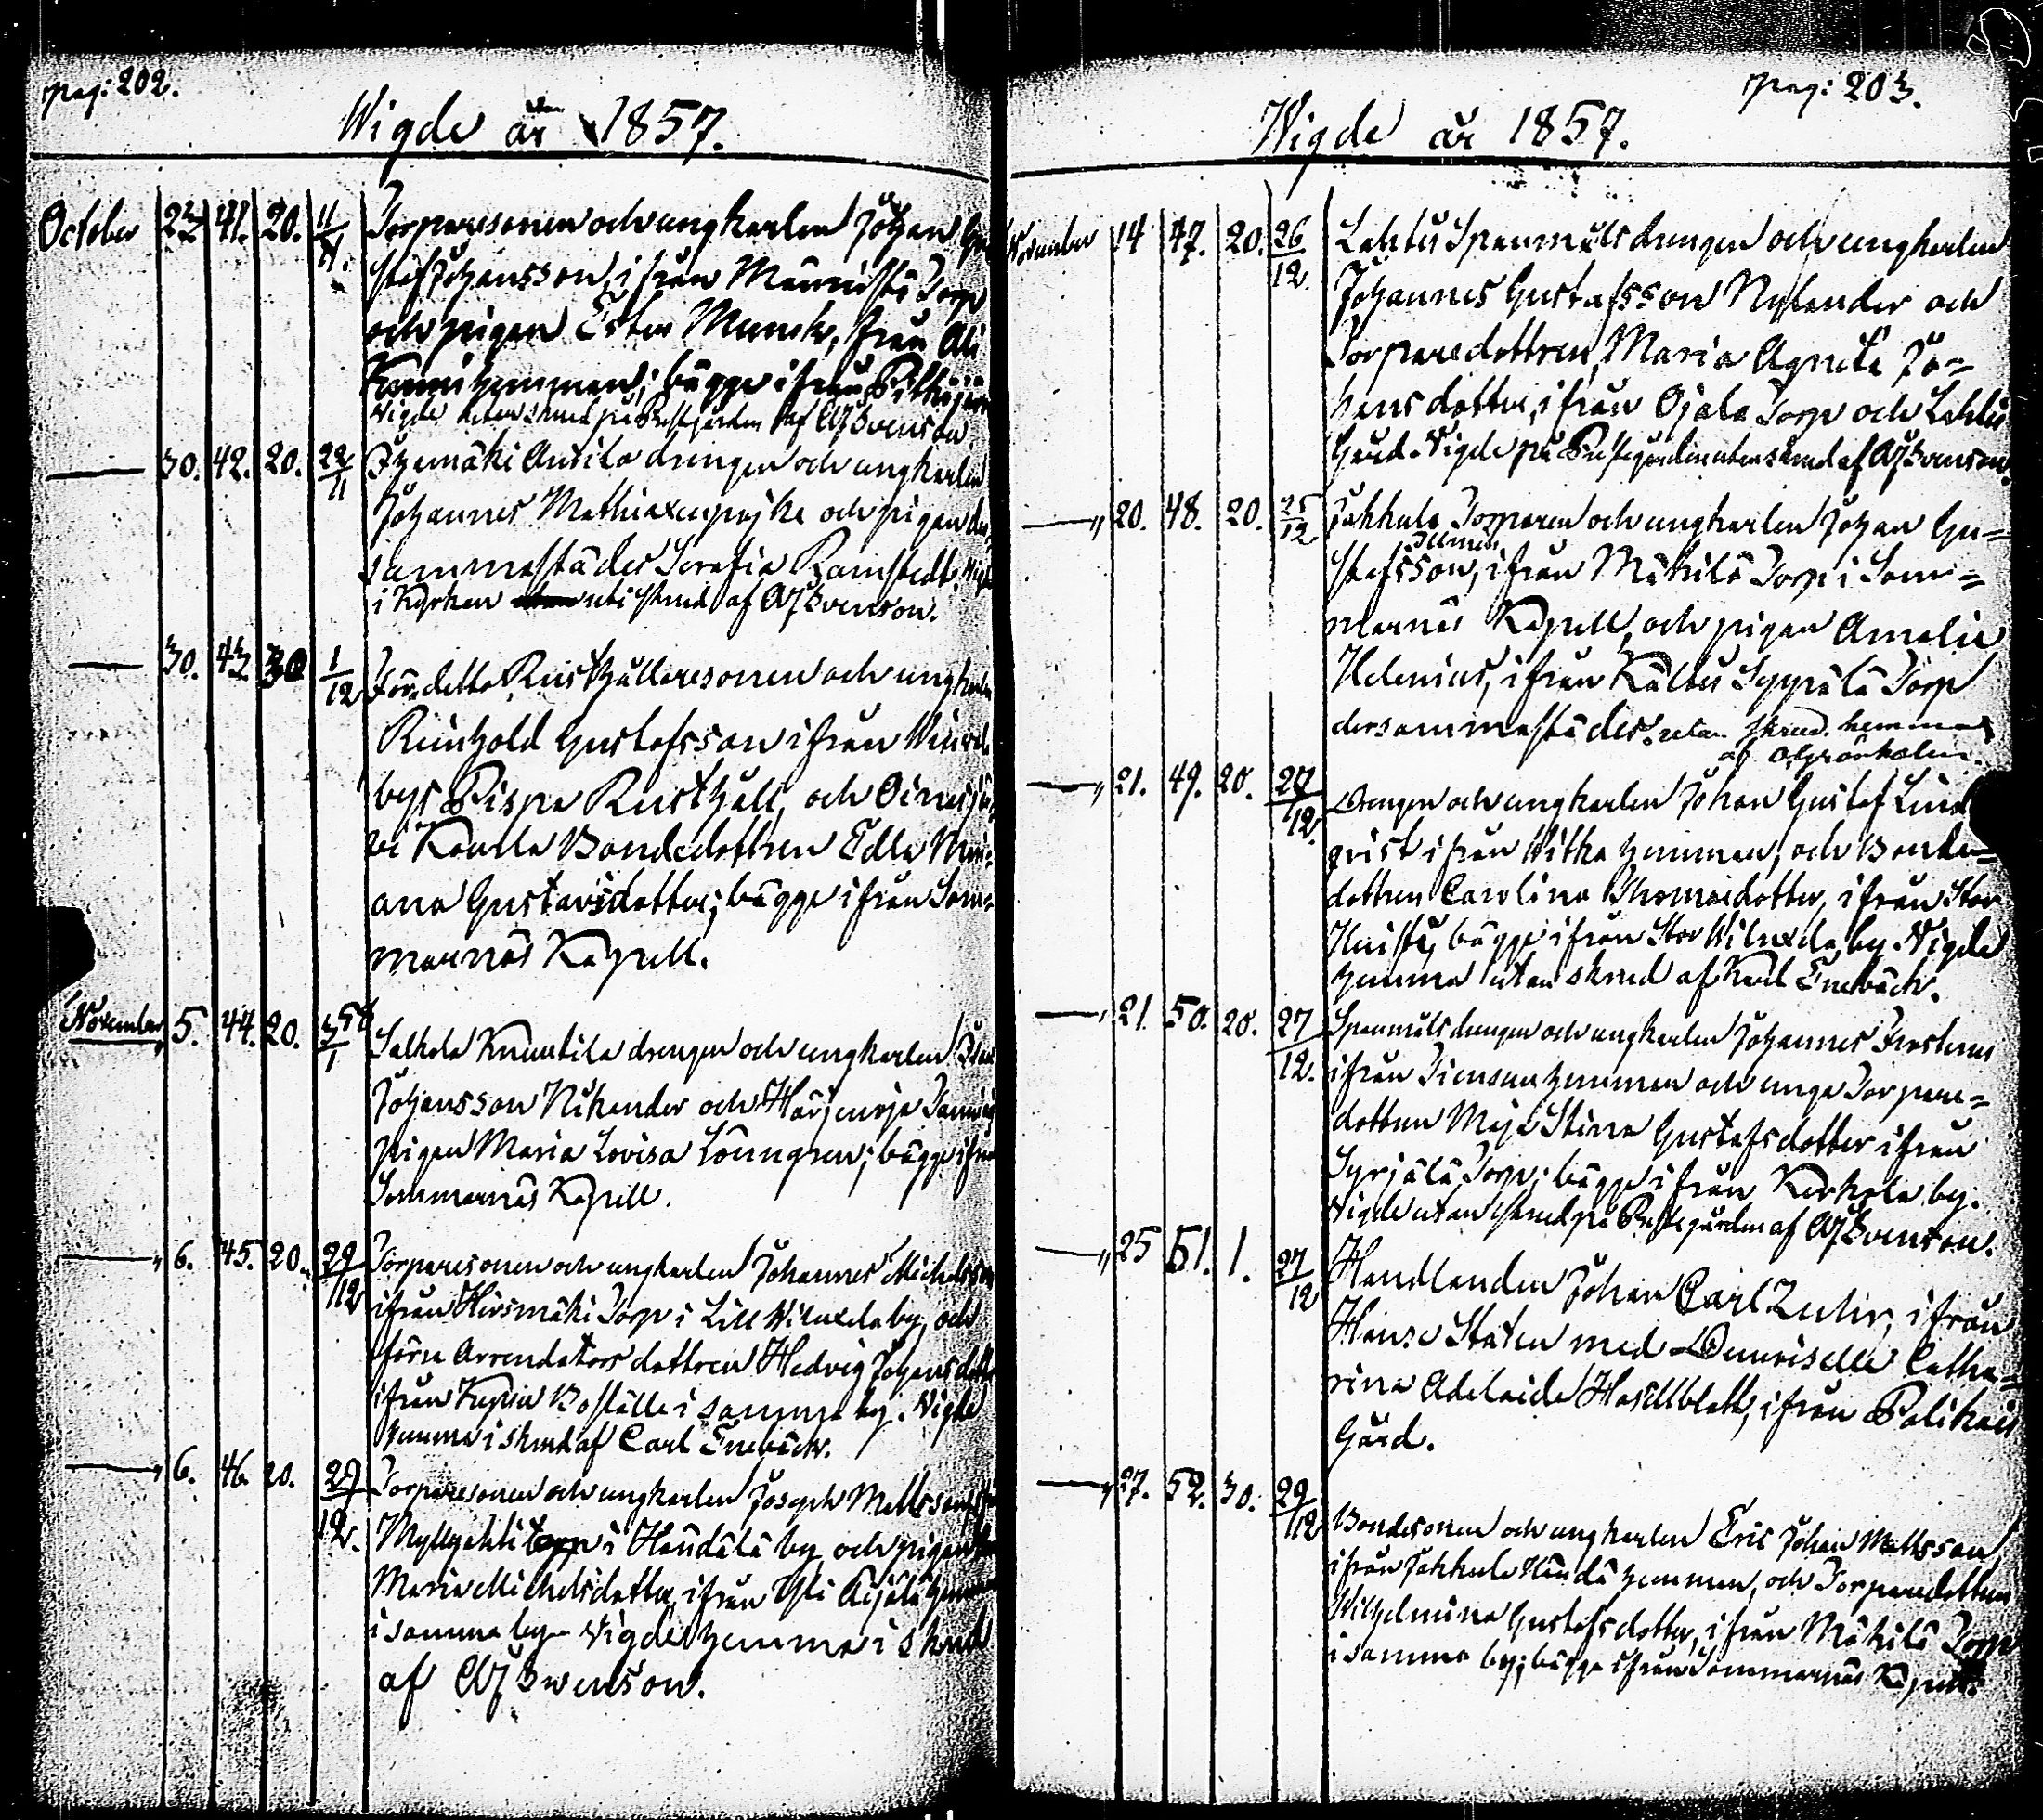 pag: 202.
Wigde år 1857.
October 23 41. 20. 11/11. Torparesonen och ungkarlen Johan Gu
staf Johansson, ifrån Männistö Torp
och pigan Ester Munck, från Ali
hemman; bägge ifrån Pitkäjär
Wigde utan skrud på Prestgården af Svenson
— 30. 42. 20. 22/11 Isomäki Anttila drengen och ungkarlen
Johannes Mathiaxenpojka och pigan der
sammastädes Serafia Ramstedt. Wigde
i Kyrkan uti skrud af Svenson.
— 30. 43. 30 1/12 Före detta Rusthållaresonen och ungkarlen
Reinhold Gustafsson ifrån
bys Pispa Rusthåll, och Oinasjär
vi Koulla Bondedottren Edla Mari
ana Gustavsdotter; bägge ifrån Som
marnäs Kapell.
November 5. 44. 20. 3/1 58 Salkola Knuutila drengen och ungkarlen
Johansson Nikander och Härjänoja
pigan Maria Lovisa Lönngren; bägge ifrån
Sommarnäs Kapell.
— 6. 45. 20. 29/12 Torparesonen och ungkarlen Johannes Michelsson
ifrån Hirsmäki Torp i Lill Wiluxela by, och
förra Arrendators dottren Hedvig Johansdotter
ifrån Boställe i samma by. Wigde
hemma i skrud af Carl Enebäck.
— 6. 46. 20. 27/12. Torparesonen och ungkarlen Joseph Mattsson
i Häntälä by och pigan
Maria Michelsdotter, ifrån Yli Äijälä hemman
i samma by. Wigde hemma i skrud
af Swenson.
pag: 203.
Wigde år 1857.
November 14 47. 20. 26/12. Lahtis Spanmåls drengen och ungkarlen
Johannes Gustafsson Nylander och
Torparedottren, Maria Agneta Jo=
hansdotter, ifrån Ojala Torp och Lahtis
Gård. Wigde på Prestgården utan skrud af Svenson.
— 20. 48. 20. 25/12 Jakkula Torparen och ungkarlen Johan Gu=
stafsson, Ilmen ifrån Mäkilä Torp i Som=
marnäs Kapell, och pigan Amalia
Helenius, ifrån Kältis Seppälä Torp
dersammastädes. utan skrud. hemma
af Grönholm.
— 21. 49. 20. 27/12. Drengen och ungkarlen Johan Gustaf Lind
qvist ifrån Witka hemman, och Bonde=
dottren Carolina Thomasdotter, ifrån Stor
bägge ifrån Stor Wiluxela by. Wigde
hemma utan skrud af Karl Enebäck.
— 21. 50. 20. 27/12. Spanmåls drengen och ungkarlen Johannes
ifrån hemman och unga Torpare=
dottren Maja Stina Gustafsdotter ifrån
Syrjälä Torp; bägge ifrån Kerkola by.
Wigde utan skrud på Prestegården af Svenson.
— 25 51. 1. 27/12 Handlanden Johan Carl ifrån
Hanse Staten med Demoiselle Catha=
rina Adelaide Hasselblatt, ifrån Palikais
Gård.
— 27. 52. 30. 29/12 Bondesonen och ungkarlen Eric Johan Mattsson,
ifrån Jakkula hemman, och Torparedottren
Wilhelmina Gustafsdotter, ifrån Mäkilä Torp
i samma by; bägge ifrån Sommarnäs Kapell.